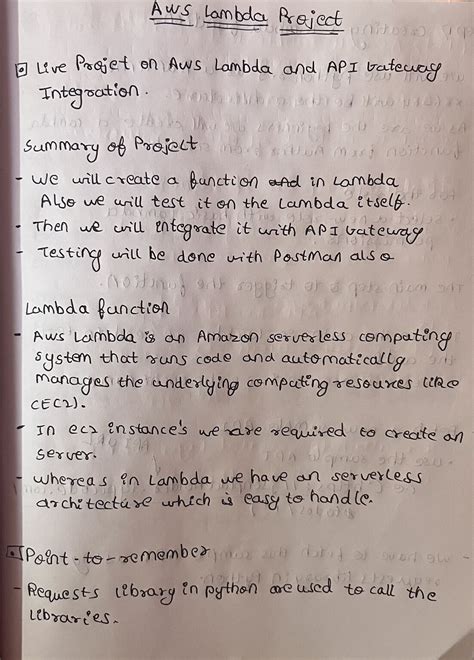 AWS Lambda Project
Live Projet on AWS Lambda and API Gateway
Integration.
Summary of Project
- We will create a function and in Lambda
Also we will test it on the Lambda itself.
- Then we will integrate it with API Gateway
- Testing will be done with Postman also
Lambda function
- AWS Lambda is an Amazon serverless computing
system that runs code and automatically
manages the underlying computing resources like
(EC2).
- In ec2 instance's we are required to create an
server.
- whereas in Lambda we have an serverless
architecture which is easy to handle.
Point-to-remember
- Requests library in python are used to call the
libraries.